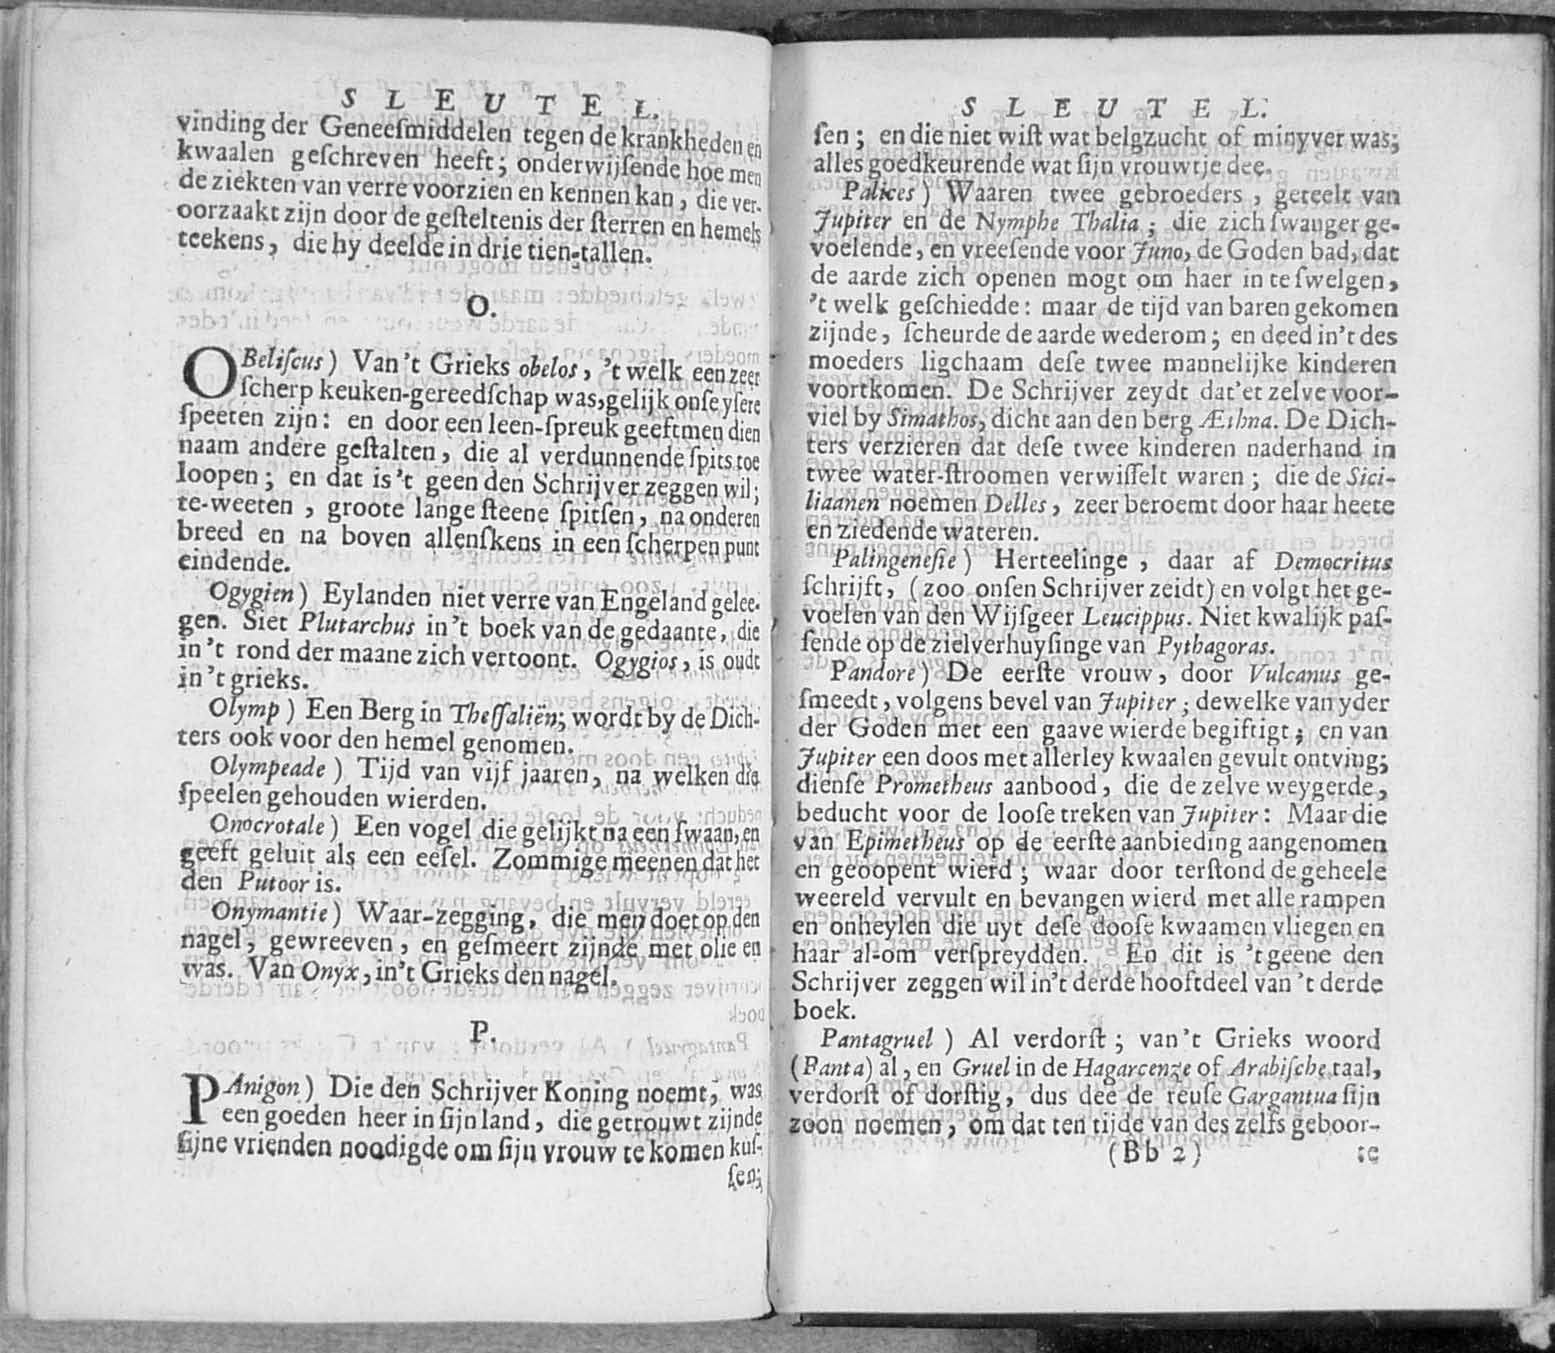 S L E U T E L.
vinding der Geneeſmiddelen tegen de krankheden en
kwaalen geſchreven heeft; onderwijſende hoe men
de ziekten van verre voorzien en kennen kan, die ver-
oorzaakt zijn door de geſteltenis der ſterren en hemels
teekens, die hy deelde in drie tien-tallen.
O.
OBeliſcus) Van 't Grieks obelos, 't welk een zeer
ſcherp keuken-gereedſchap was, gelijk onſe yſere
ſpeeten zijn: en door een leen-ſpreuk geeft men dien
naam andere geſtalten, die al verdunnende ſpits toe
loopen; en dat is 't geen den Schrijver zeggen wil;
te-weeten, groote lange ſteene ſpitſen, na onderen
breed en na boven allenſkens in een ſcherpen punt
eindende.
Ogygien) Eylanden niet verre van Engeland gelee-
gen. Siet Plutarchus in 't boek van de gedaante, die
in 't rond der maane zich vertoont. Ogygios, is oudt
in 't grieks.
Olymp) Een Berg in Theſſaliën; wordt by de Dich-
ters ook voor den hemel genomen.
Olympeade) Tijd van vijf jaaren, na welken die
ſpeelen gehouden wierden.
Onocrotale) Een vogel die gelijkt na een ſwaan, en
geeft geluit als een eeſel. Zommige meenen dat het
den Putoor is.
Onymantie) Waar-zegging, die men doet op den
nagel, gewreeven, en geſmeert zijnde met olie en
was. Van Onyx, in't Grieks den nagel.
P.
PAnigon) Die den Schrijver Koning noemt, was
een goeden heer in ſijn land, die getrouwt zijnde
ſijne vrienden noodigde om ſijn vrouw te komen kuſ-
ſen;
S L E U T E L.
ſen; en die niet wiſt wat belgzucht of minyver was;
alles goedkeurende wat ſijn vrouwtje dee.
Palices) Waaren twee gebroeders, geteelt van
Jupiter en de Nymphe Thalia; die zich ſwanger ge-
voelende, en vreeſende voor Juno, de Goden bad, dat
de aarde zich openen mogt om haer in te ſwelgen,
't welk geſchiedde: maar de tijd van baren gekomen
zijnde, ſcheurde de aarde wederom; en deed in't des
moeders ligchaam deſe twee mannelijke kinderen
voortkomen. De Schrijver zeydt dat'et zelve voor-
viel by Simathos, dicht aan den berg Æthna. De Dich-
ters verzieren dat deſe twee kinderen naderhand in
twee water-ſtroomen verwiſſelt waren; die de Sici-
liaanen noemen Delles, zeer beroemt door haar heete
en ziedende wateren.
Palingeneſie) Herteelinge, daar af Democritus
ſchrijft, (zoo onſen Schrijver zeidt) en volgt het ge-
voelen van den Wijſgeer Leucippus. Niet kwalijk paſ-
ſende op de zielverhuyſinge van Pythagoras.
Pandore) De eerſte vrouw, door Vulcanus ge-
ſmeedt, volgens bevel van Jupiter; dewelke van yder
der Goden met een gaave wierde begiftigt; en van
Jupiter een doos met allerley kwaalen gevult ontving;
dienſe Prometheus aanbood, die de zelve weygerde,
beducht voor de looſe treken van Jupiter: Maar die
van Epimetheus op de eerſte aanbieding aangenomen
en geoopent wierd; waar door terſtond de geheele
weereld vervult en bevangen wierd met alle rampen
en onheylen die uyt deſe dooſe kwaamen vliegen en
haar al-om verſpreydden. En dit is 't geene den
Schrijver zeggen wil in't derde hooftdeel van 't derde
boek.
Pantagruel) Al verdorſt; van 't Grieks woord
(Panta) al, en Gruel in de Hagarcenze of Arabiſche taal,
verdorſt of dorſtig, dus dee de reuſe Gargantua ſijn
zoon noemen, om dat ten tijde van des zelfs geboor-
(Bb 2) te